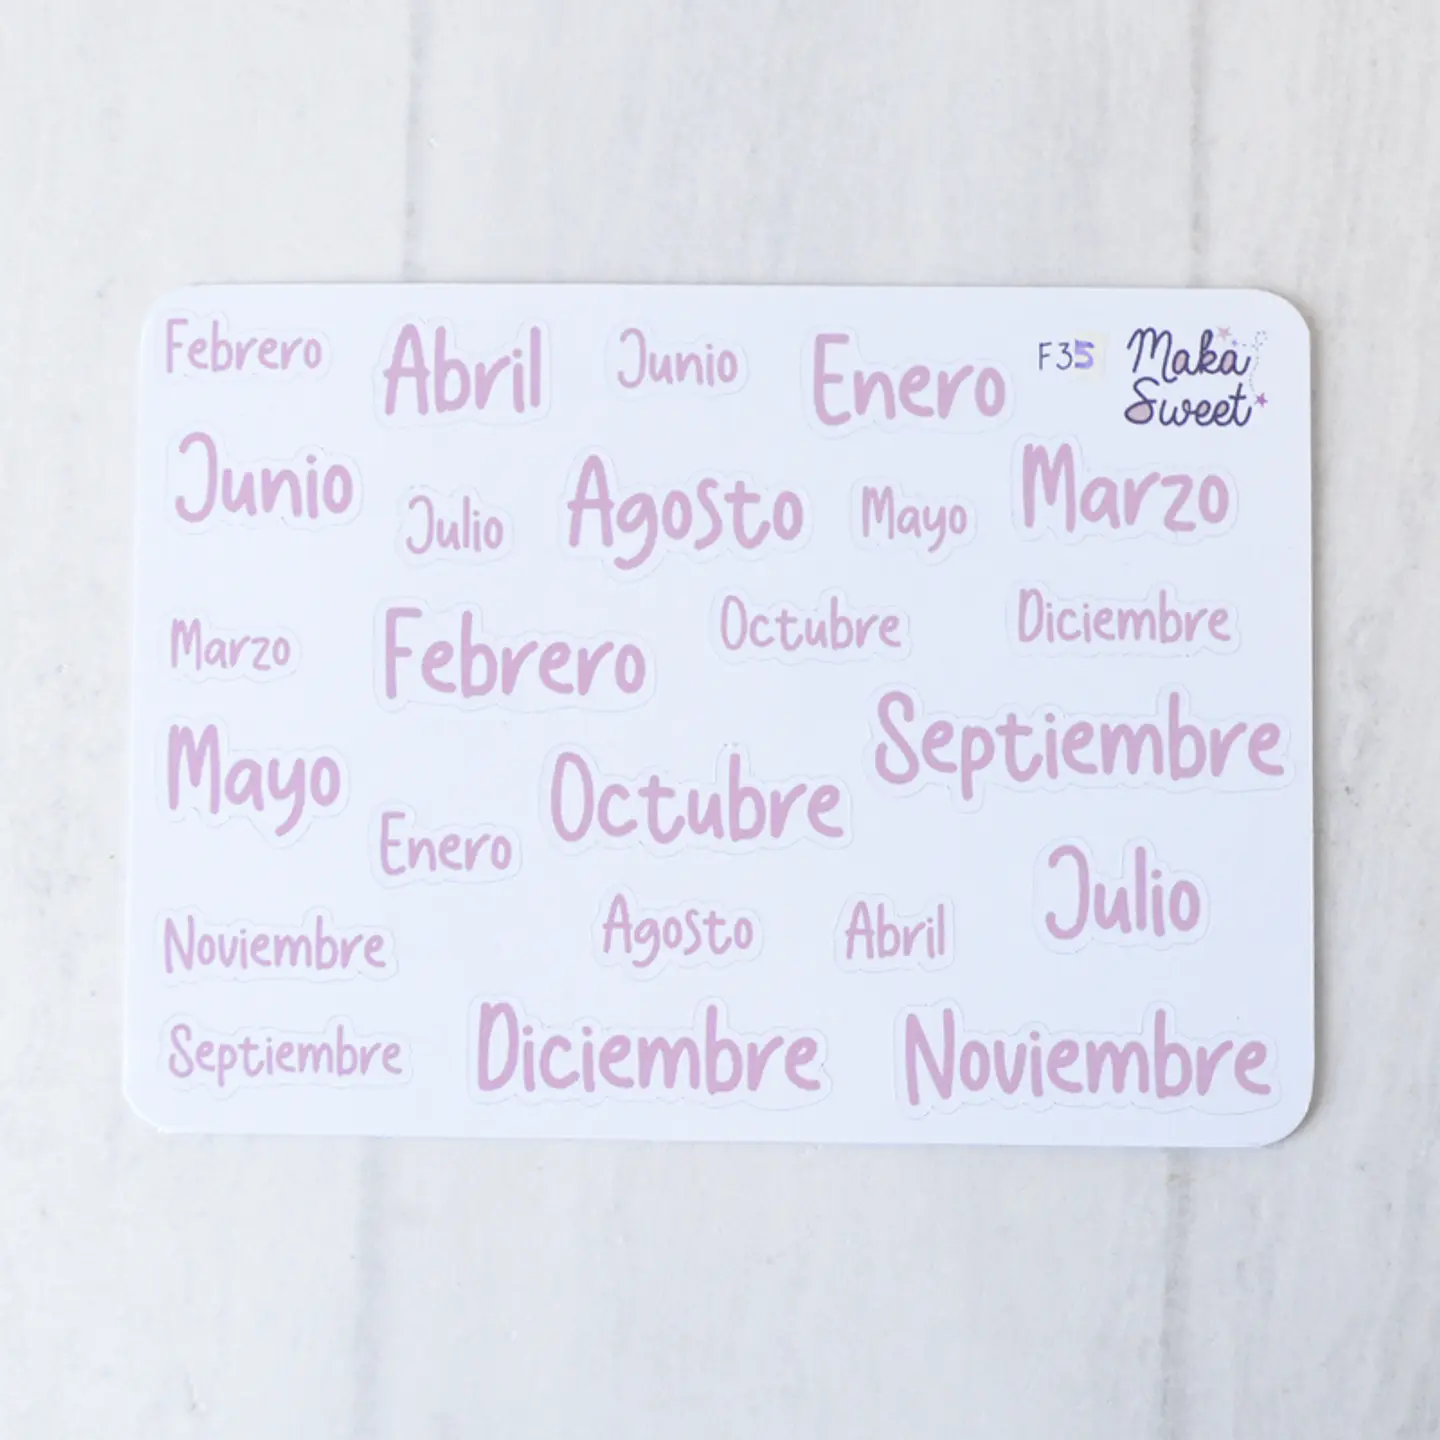 Febrero Abril Junio Enero F35 Maka
Sweet
Junio Julio Agosto Mayo Marzo
Marzo Febrero Octubre Diciembre
Mayo Octubre Septiembre
Enero Julio
Noviembre Agosto Abril
Septiembre Diciembre Noviembre